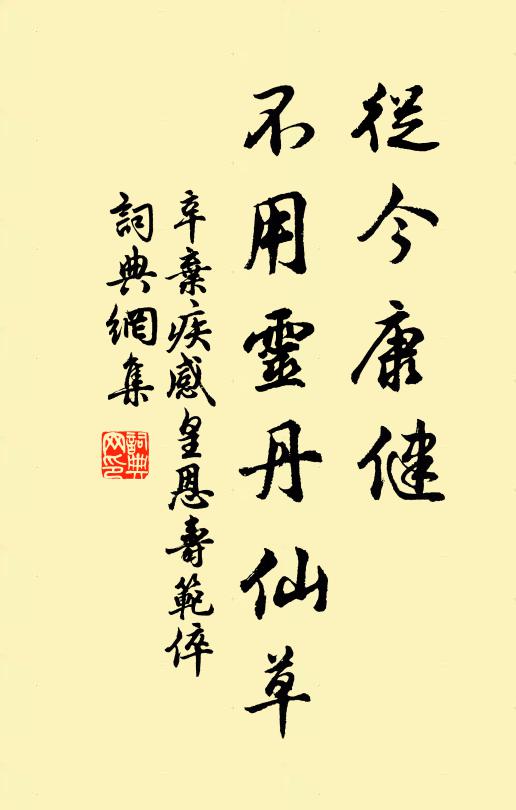 從今康健
不用靈丹仙草
辛棄疾感皇恩壽範倅
詞典網集
詞典网印